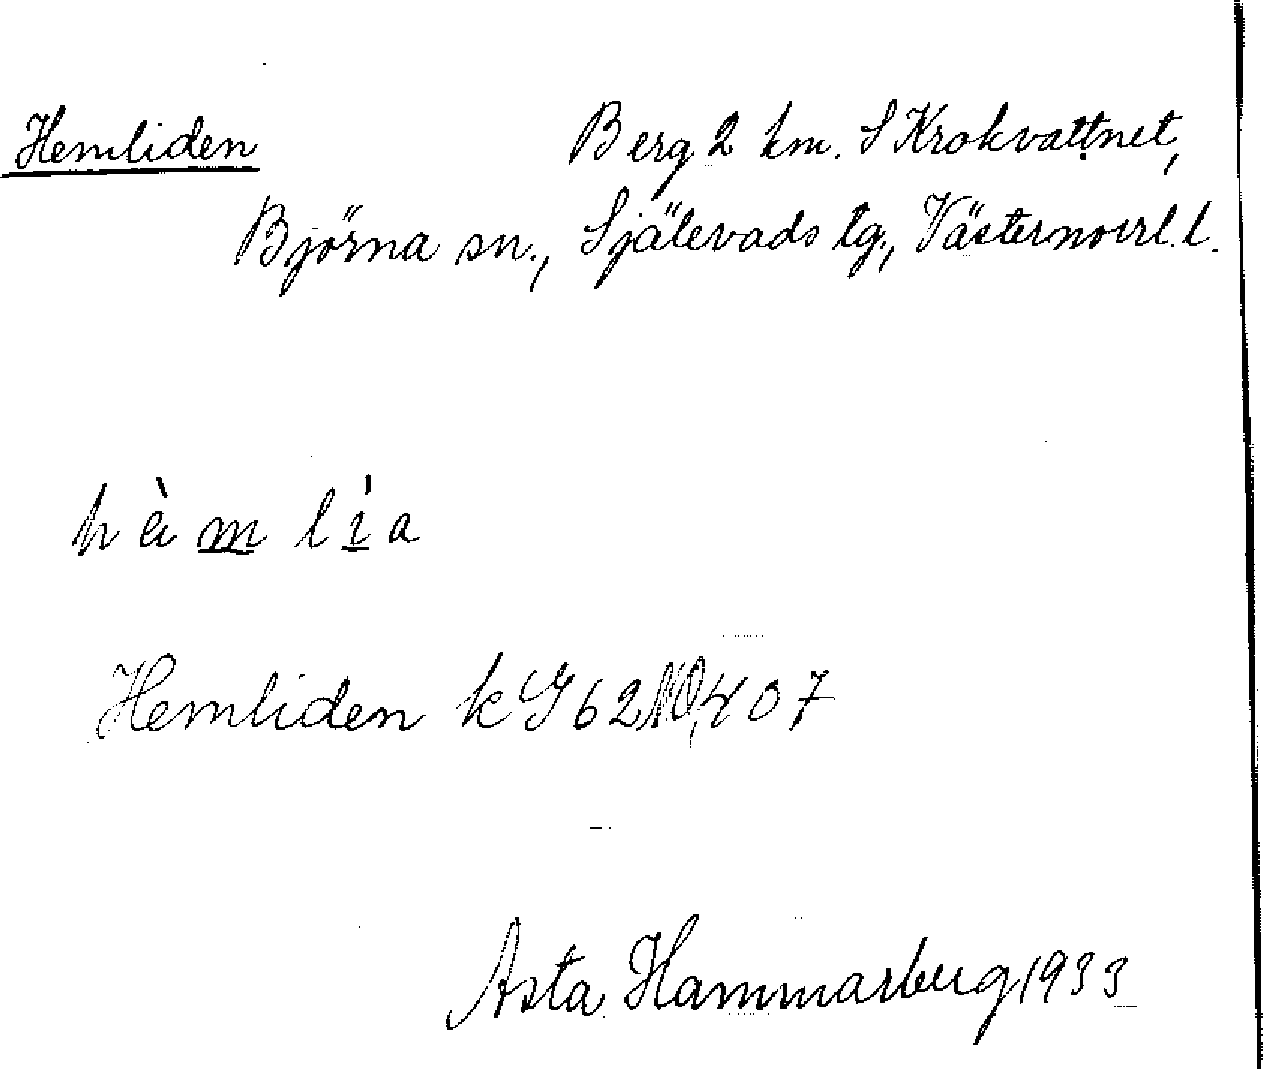 Hemliden Berg 2 km. S Krokvattnet,
Björna sn., Själevads tg., Västernorrl. l.
hèm lìa
Hemliden k G 62 NO, 407
Asta Hammarberg 1933